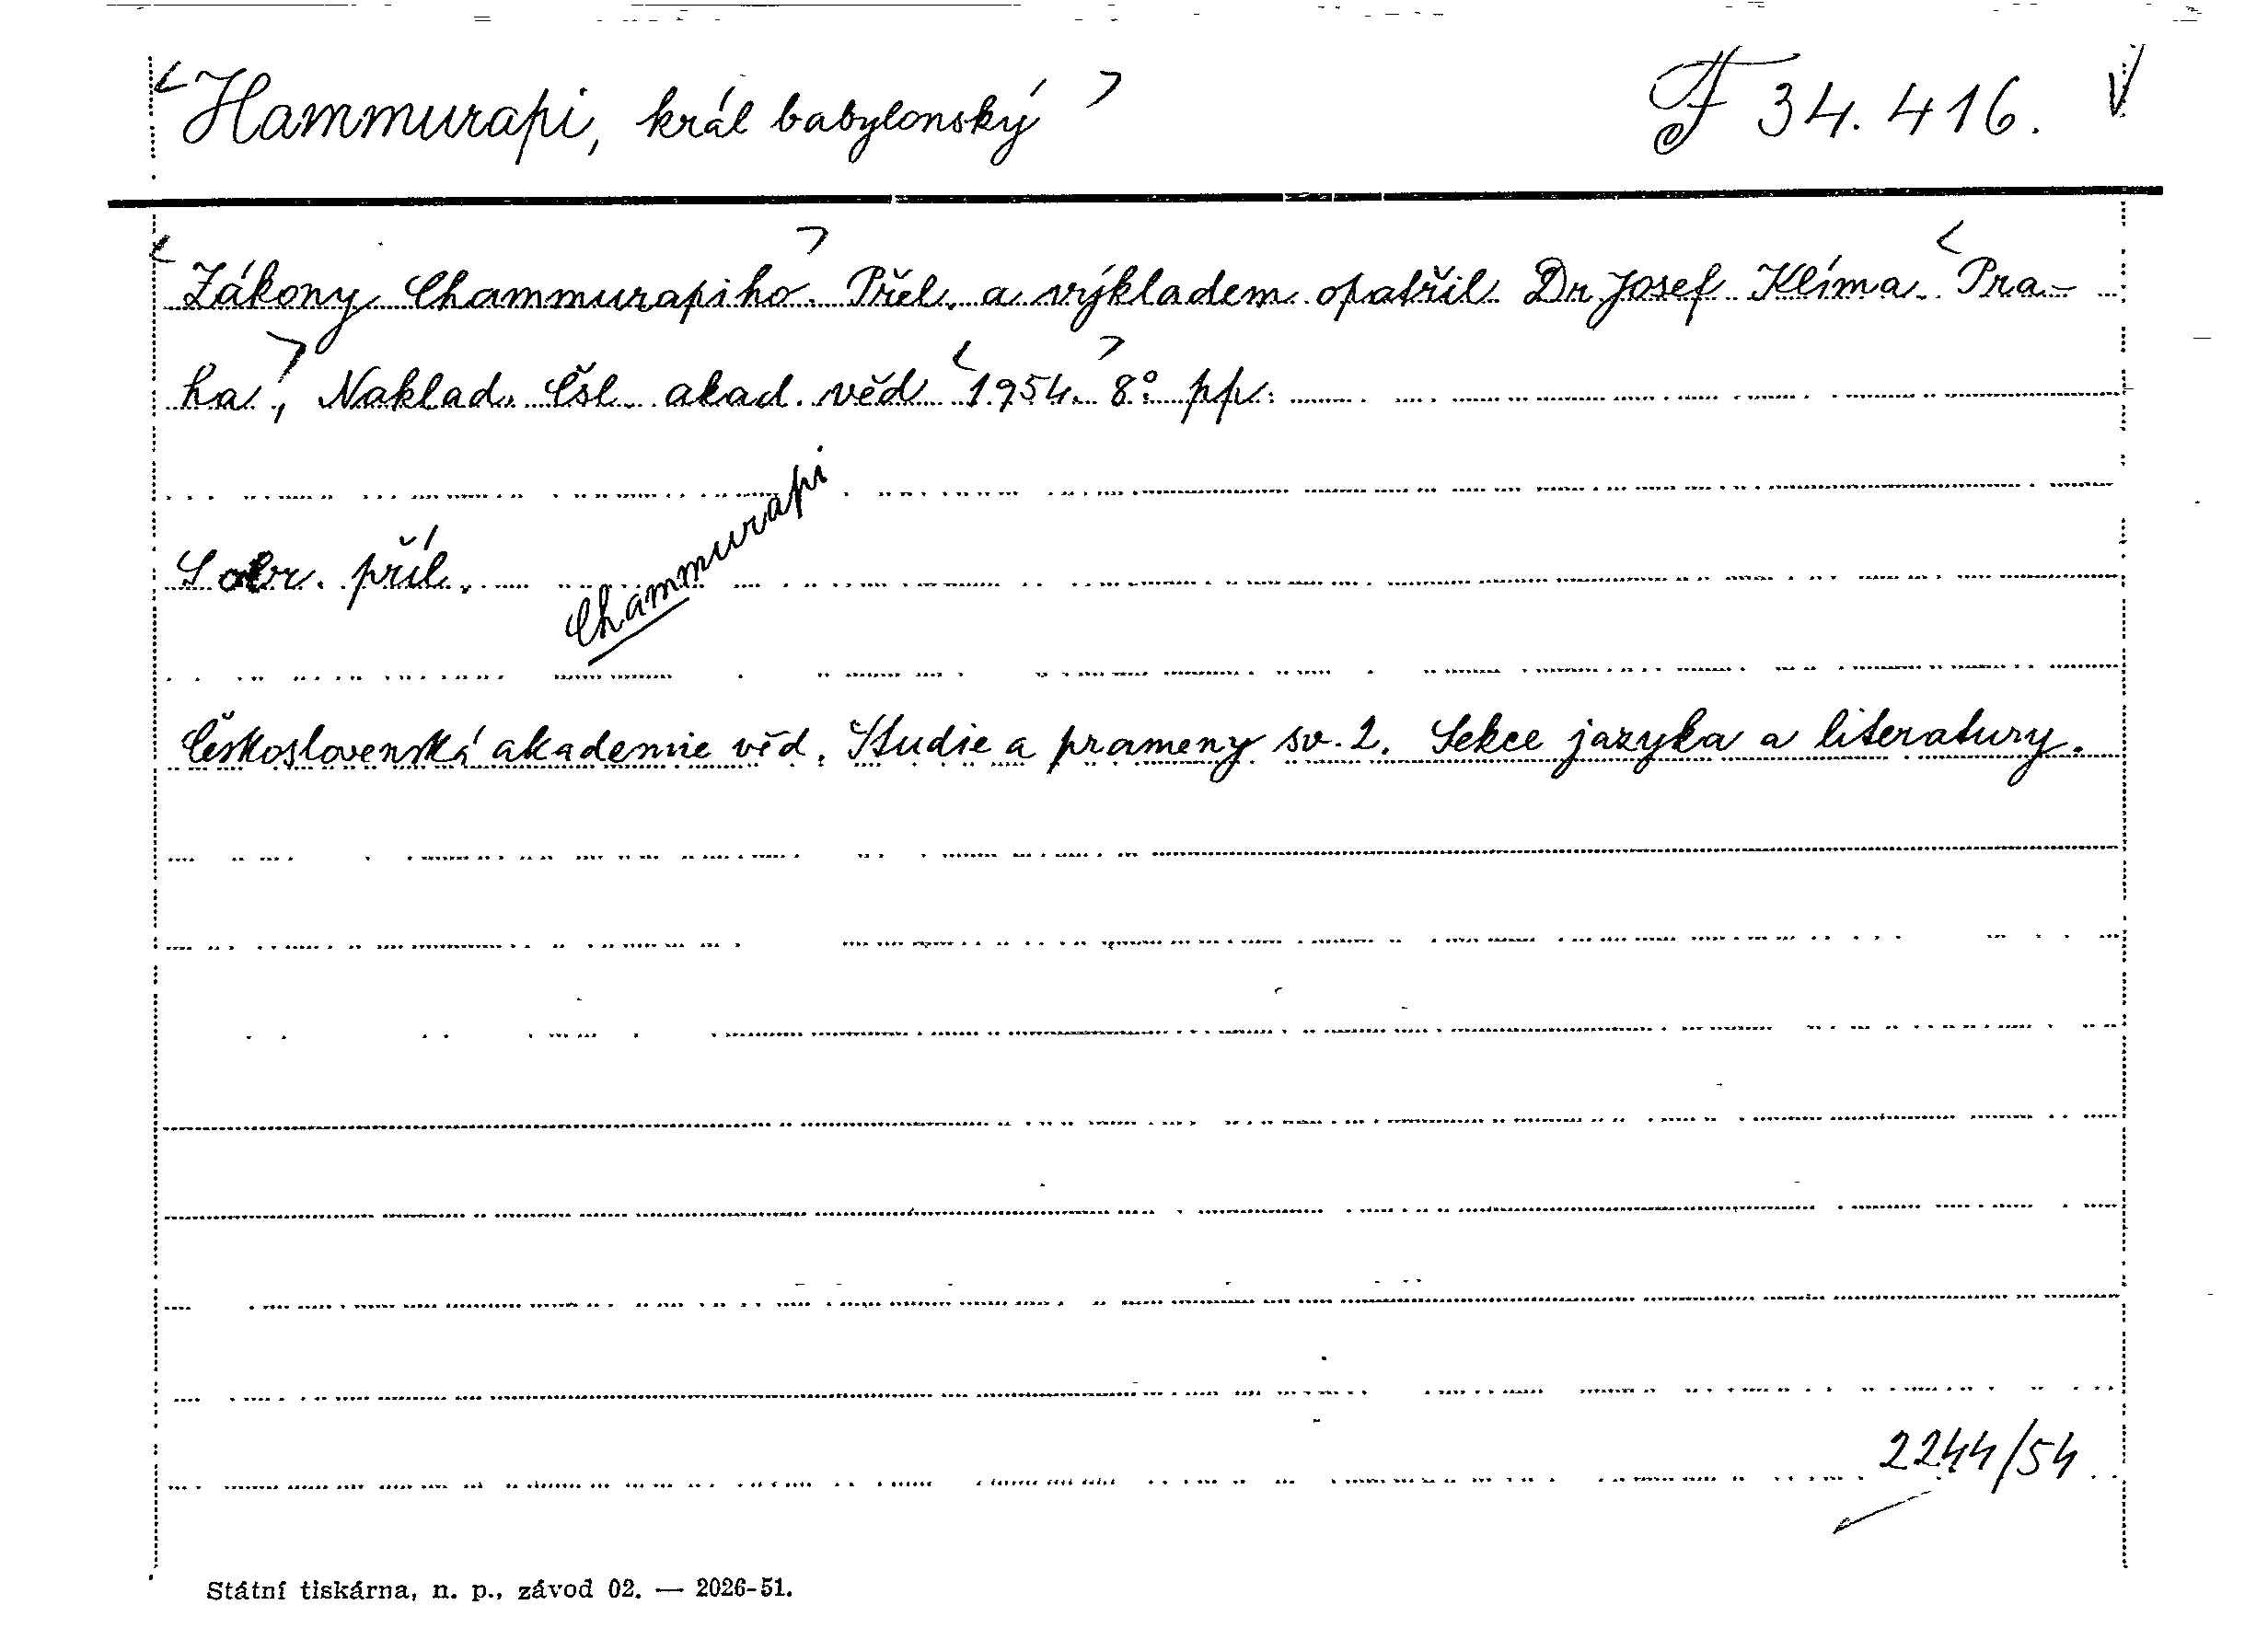 <Hammurapi, král babylonský> F 34.416. V
<Zákony Chammurapiho>. Přel. a výkladem opatřil Dr Josef Klíma. <Pra-
ha>, Naklad. Čsl. akad. věd <1954.> 8° pp.
Chammurapi
S obr. příl.
Československá akademie věd. Studie a prameny sv. 2. Sekce jazyka a literatury.
2244/54
Státní tiskárna, n. p., závod 02. — 2026-51.